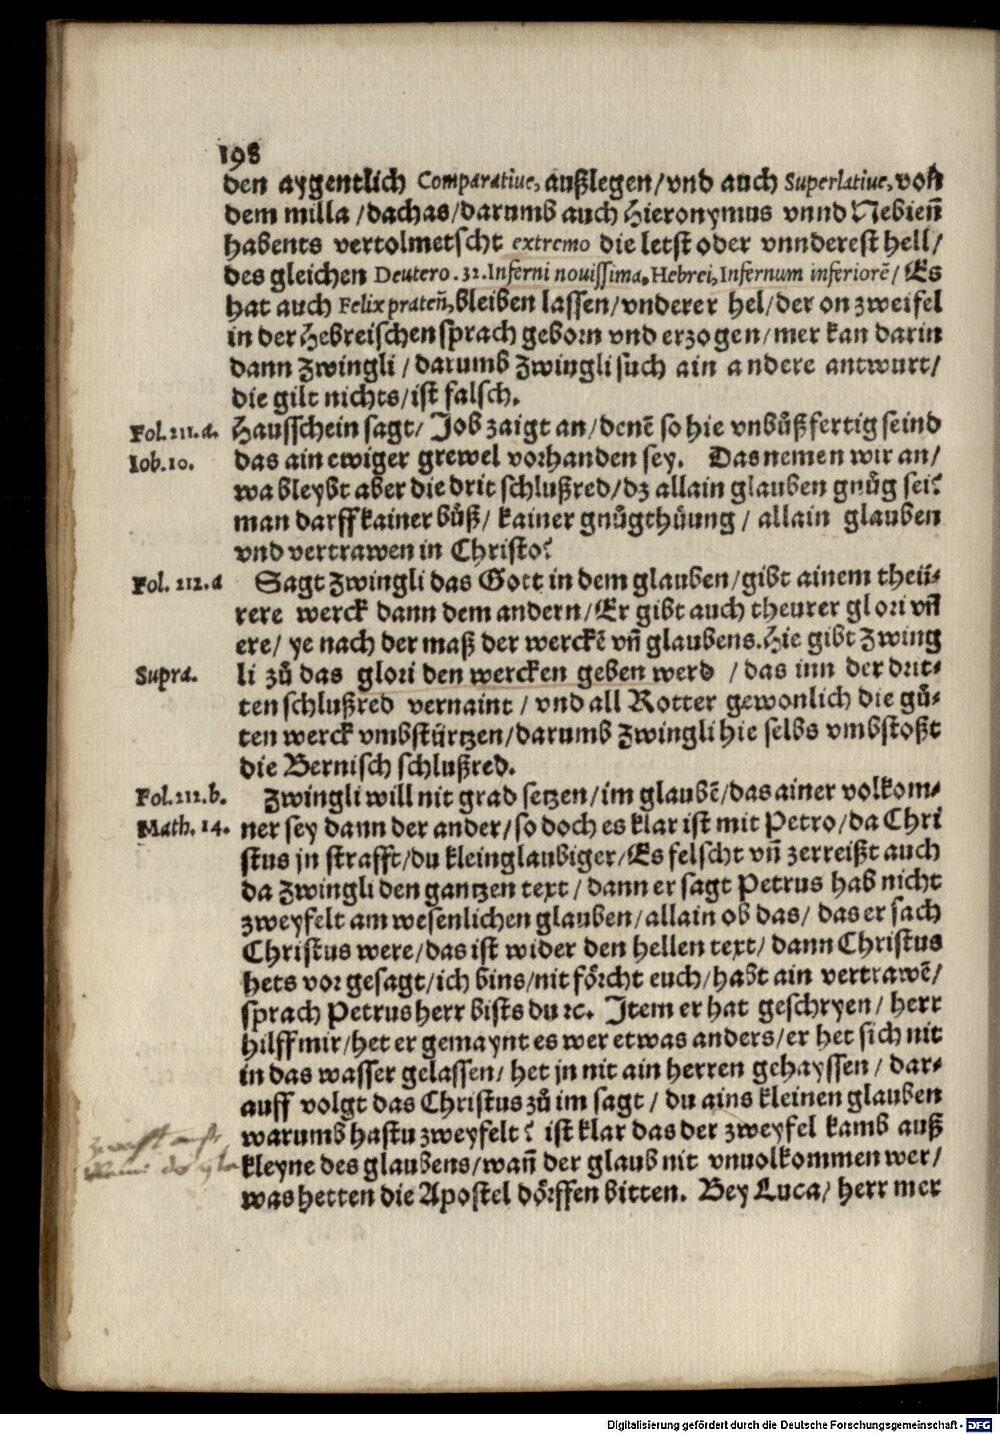 198
den aygentlich Comparatiue, außlegen/vnd auch Superlatiue, von
dem milla /dachas/darumb auch Hieronymus vnnd Nebieñ
habents vertolmetscht extremo die letst oder vnnderest hell/
des gleichen Deutero. 32. Inferni nouissima. Hebrei, Infernum inferiorē/ Es
hat auch Felix prateñ, bleiben lassen/vnderer hel/der on zweifel
in der Hebreischen sprach geborn vnd erzogen/mer kan darin
dann Zwingli/darumb Zwingli such ain andere antwurt/
die gilt nichts/ist falsch.
Fol. 111. d. Hausschein sagt/ Job zaigt an/denē so hie vnbůßfertig seind
Iob. 10. das ain ewiger grewel vorhanden sey. Das nemen wir an/
wa bleybt aber die drit schlußred/dz allain glauben gnůg sei?
man darff kainer bůß/ kainer gnůgthůung / allain glauben
vnd vertrawen in Christo?
Fol. 112. a Sagt Zwingli das Gott in dem glauben/gibt ainem theü-
rere werck dann dem andern/Er gibt auch theurer glori vñ
ere/ ye nach der maß der werckē vñ glaubens. Hie gibt Zwing
Supra. li zů das glori den wercken geben werd /das inn der drit-
ten schlußred vernaint / vnd all Rotter gewonlich die gů-
ten werck vmbstürtzen/darumb Zwingli hie selbs vmbstoßt
die Bernisch schlußred.
Fol. 112. b. Zwingli will nit grad setzen/im glaubē/das ainer volkom-
Math. 14. ner sey dann der ander/so doch es klar ist mit Petro/da Chri
stus jn strafft/du kleinglaubiger/Es felscht vñ zerreißt auch
da Zwingli den gantzen text/dann er sagt Petrus hab nicht
zweyfelt am wesenlichen glauben/allain ob das/ das er sach
Christus were/das ist wider den hellen text/ dann Christus
hets vor gesagt/ich bins/nit förcht euch/habt ain vertrawē/
sprach Petrus herr bists du ꝛc. Item er hat geschryen/ herr
hilff mir/het er gemaynt es wer etwas anders/er het sich nit
in das wasser gelassen/ het jn nit ain herren gehayssen / dar-
auff volgt das Christus zů im sagt / du ains kleinen glauben
warumb hastu zweyfelt? ist klar das der zweyfel kamb auß
kleyne des glaubens/wañ der glaub nit vnuolkommen wer/
was hetten die Apostel dörffen bitten. Bey Luca/ herr mer
Digitalisierung gefördert durch die Deutsche Forschungsgemeinschaft - DFG